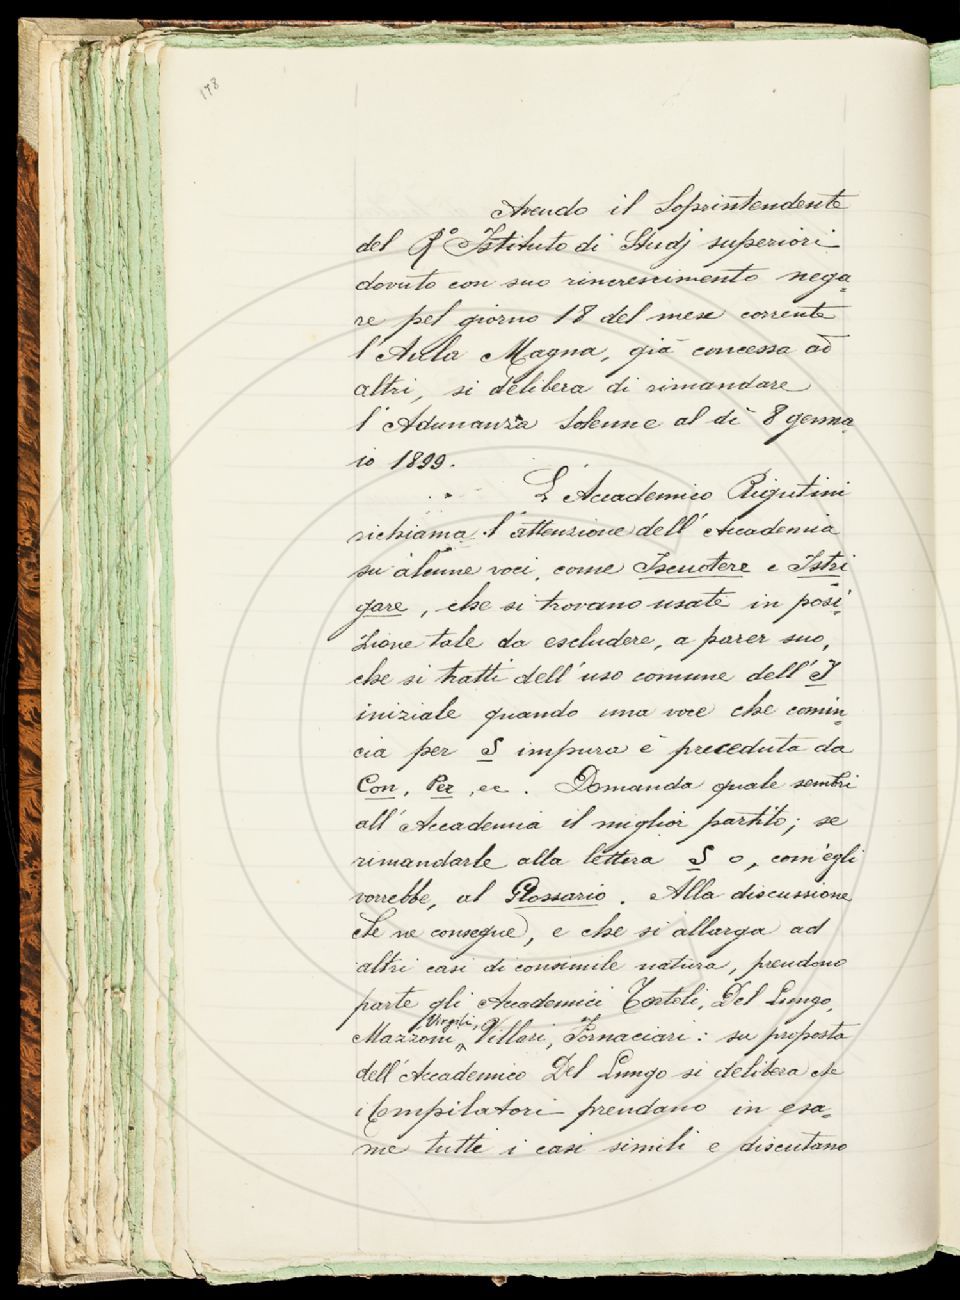 178
Avendo il Soprintendente
del R.° Istituto di Studj superiori
dovuto con suo rincrescimento nega=
re pel giorno 18 del mese corrente
l'Aula Magna, già concessa ad
altri, si delibera di rimandare
l'Adunanza Solenne al dì 8 genna=
io 1899.
L'Accademico Rigutini
richiama l'attenzione dell'Accademia
su alcune voci, come Iscuotere e Istri=
gare, che si trovano usate in posi=
zione tale da escludere, a parer suo,
che si tratti dell'uso comune dell'I
iniziale quando una voce che comin=
cia per S impura è preceduta da
Con, Per, ec. Domanda quale sembri
all'Accademia il miglior partito; se
rimandarle alla lettera S o, com'egli
vorrebbe, al Glossario. Alla discussione
che ne consegue, e che si allarga ad
altri casi di consimile natura, prendono
parte gli Accademici Tortoli, Del Lungo,
Mazzoni, Virgili, Villari, Fornaciari: su proposta
dell'Accademico Del Lungo si delibera che
i Compilatori prendano in esa=
me tutti i casi simili e discutano